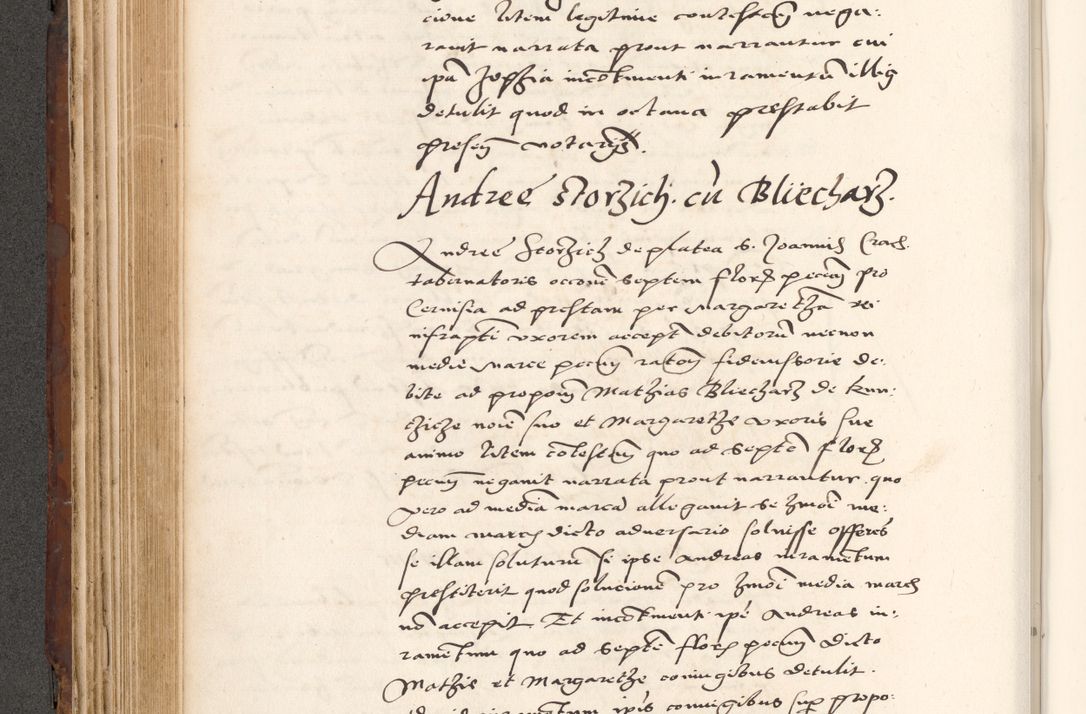 cione litem legitime contestan nega:
ravit narrata prout narrantur cui
ipa Jophia incotinenti iuramentu illig
detulit quod in octava prestabit
presen notarys.
Andree Storzich. cu Bliecharz.
Andree Storzich de platea S. Joannis Crach.
tabernatoris occone septem flor pecun pro
Cervisia ad prestam per Margaretha
infrapti uxorem accept debitoru necnon
medie marce pecun raton fideiussorie de:
bite ad propon Mathias Bliecharz de Kun:
czicze noie suo et Margarethe uxoris sue
animo litem cotestan quo ad septe flor
pecun negavit narrata prout narrantur quo
vero ad media marca allegavit se me:
diam march dicto adversario solvisse offeres
se illam soluturu si ipse Andreas iuramentum
prestiterit quod solucione pro media march
no accepit Et incotinenti ipe Andreas iu:
ramentum quo ad septe flor pecun dicto
Mathie et Margarethe coniugibus detulit.
iuramentum ipis coniugibus sup propo: